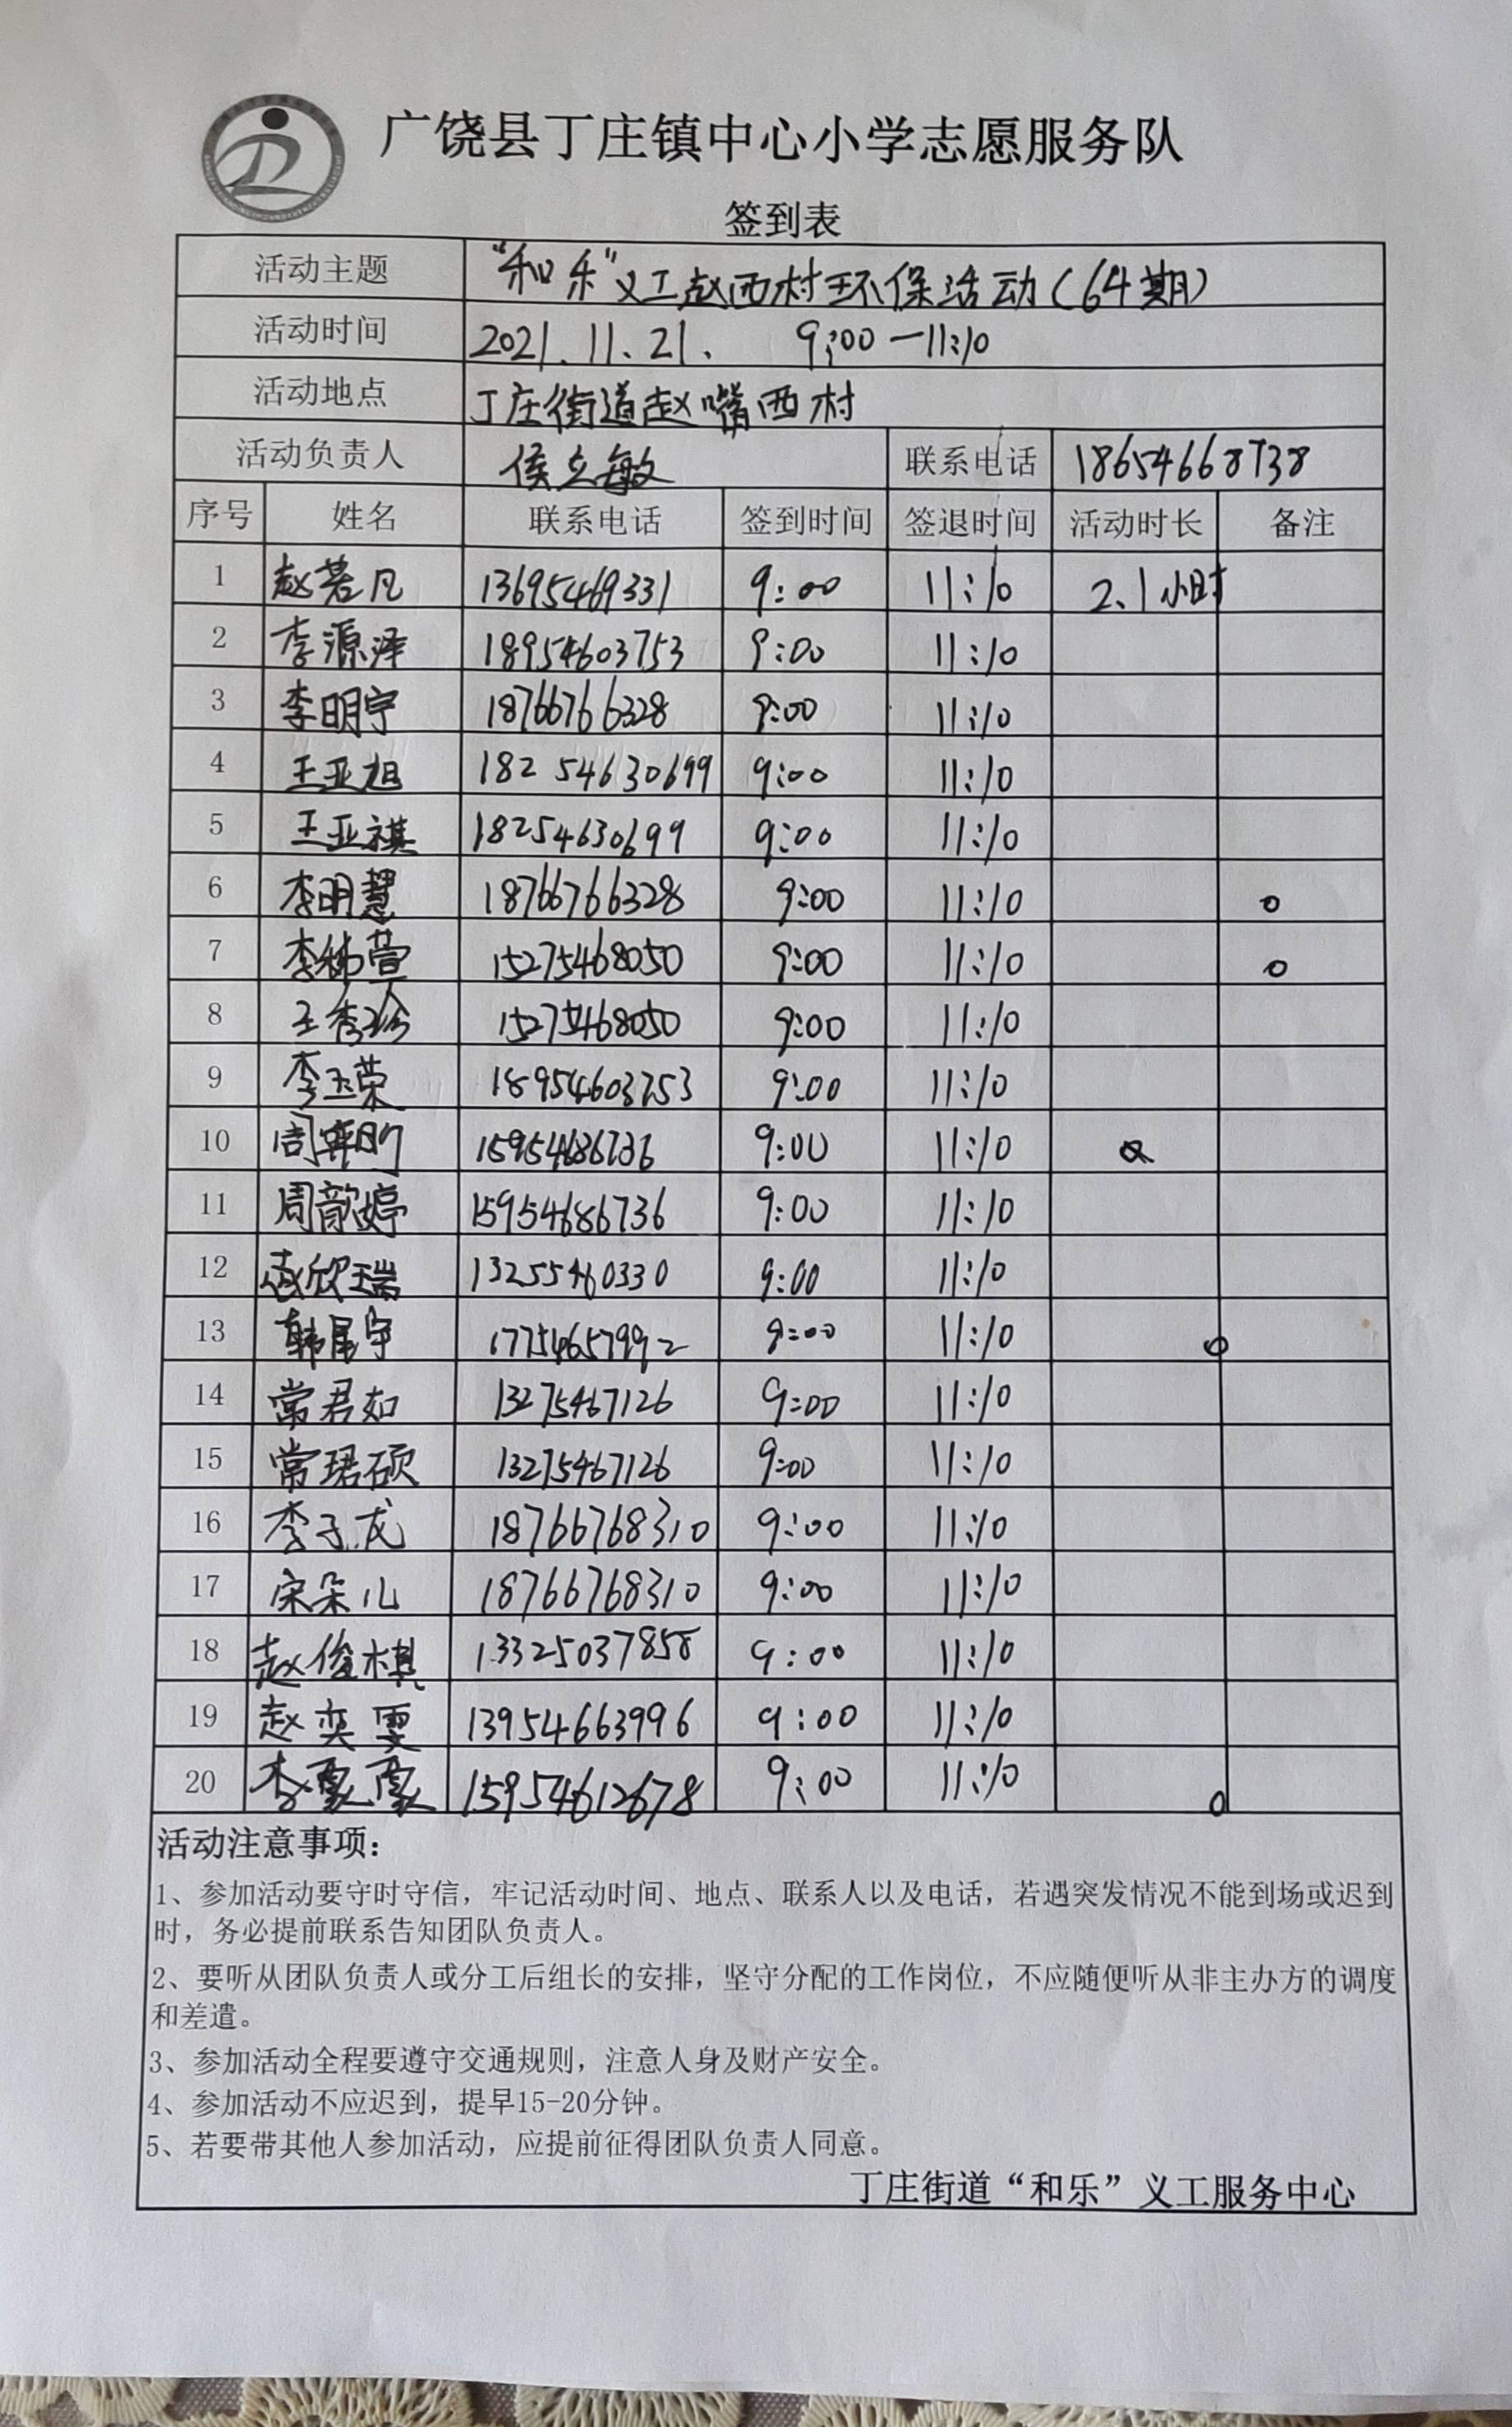 广饶县丁庄镇中心小学志愿服务队
签到表
活动主题 “和乐”义工赵西村环保活动(64期)
活动时间 2021.11.21. 9:00—11:10
活动地点 丁庄街道赵嘴西村
活动负责人 侯立敏 联系电话 18654668738
序号 姓名 联系电话 签到时间 签退时间 活动时长 备注
1 赵若凡 13695469331 9:00 11:10 2.1小时
2 李源泽 18954603753 9:00 11:10
3 李明宇 18766766328 9:00 11:10
4 王亚旭 18254630699 9:00 11:10
5 王亚祺 18254630699 9:00 11:10
6 李明慧 18766766328 9:00 11:10
7 李 萱 15275468050 9:00 11:10
8 王秀珍 15275468050 9:00 11:10
9 李玉荣 18954603753 9:00 11:10
10 周 15954686736 9:00 11:10
11 周歆婷 15954686736 9:00 11:10
12 赵欣瑞 13255460330 9:00 11:10
13 韩 宇 17754657992 9:00 11:10
14 常君如 13275467126 9:00 11:10
15 常珺硕 13275467126 9:00 11:10
16 李子龙 18766768310 9:00 11:10
17 宋朵儿 18766768310 9:00 11:10
18 赵俊棋 13325037858 9:00 11:10
19 赵奕雯 13954663996 9:00 11:10
20 李 15954612678 9:00 11:10
活动注意事项:
1、参加活动要守时守信，牢记活动时间、地点、联系人以及电话，若遇突发情况不能到场或迟到
时，务必提前联系告知团队负责人。
2、要听从团队负责人或分工后组长的安排，坚守分配的工作岗位，不应随便听从非主办方的调度
和差遣。
3、参加活动全程要遵守交通规则，注意人身及财产安全。
4、参加活动不应迟到，提早15-20分钟。
5、若要带其他人参加活动，应提前征得团队负责人同意。
丁庄街道“和乐”义工服务中心